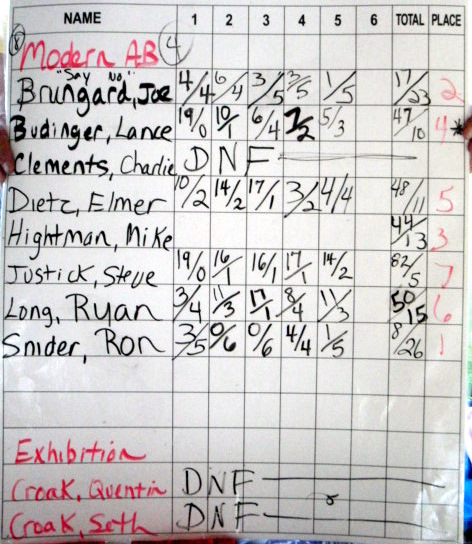 NAME 1 2 3 4 5 6 TOTAL PLACE
8 Modern AB 4
"Say No"
Brungard, Joe 4/4 6/4 3/5 3/5 1/5 17/23 2
Budinger, Lance 19/0 10/1 6/4 7/2 5/3 47/10 4*
Clements, Charlie DNF
Dietz, Elmer 10/2 14/2 17/1 3/2 4/4 48/11 5
Hightman, Mike 44/13 3
Justick, Steve 19/0 16/1 16/1 17/1 14/2 82/5 7
Long, Ryan 3/4 11/3 17/1 8/4 11/3 50/15 6
Snider, Ron 3/5 0/6 0/6 4/4 1/5 8/26 1
Exhibition
Croak, Quentin DNF
Croak, Seth DNF